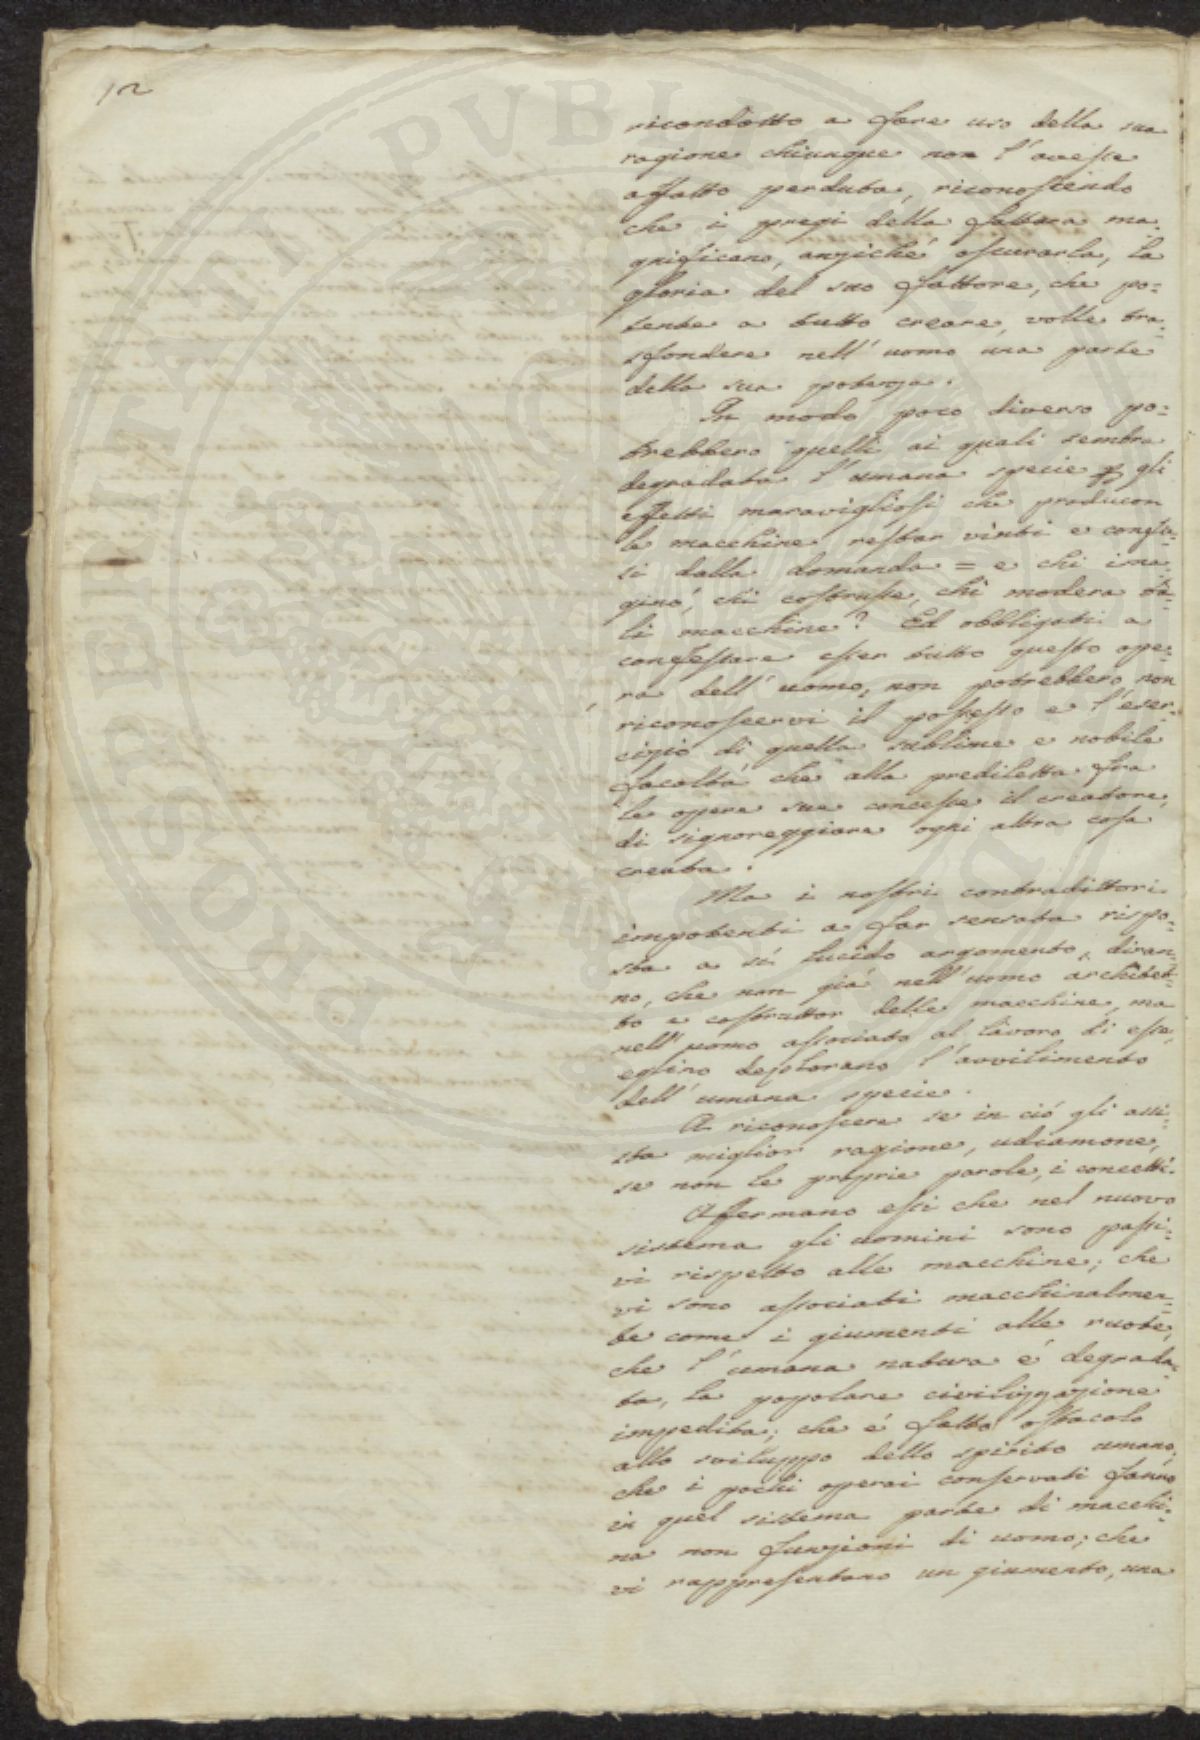 12
ricondotto a fare uso della sua
ragione chiunque non l'avesse
affatto perduta, riconoscendo
che i pregi della fattura ma-
gnificano, anziché oscurarla, la
gloria del suo fattore, che po-
tente a tutto creare, volle tra-
sfondere nell'uomo una parte
della sua potenza.
In modo poco diverso po-
trebbero quelli ai quali sembra
degradata l'umana specie gli
effetti maravigliosi che producon
le macchine restar vinti e confu-
si dalla domanda = e chi ima-
ginò, chi costrusse, chi modera ta-
li macchine? Ed obbligati a
confessare esser tutto questo ope-
ra dell'uomo, non potrebbero non
riconoscervi il possesso e l'eser-
cizio di quella sublime e nobile
facoltà che alla prediletta fra
le opere sue concesse il creatore,
di signoreggiare ogni altra cosa
creata.
Ma i nostri contradittori
impotenti a far sensata rispo-
sta a sì lucido argomento, diran-
no, che non già nell'uomo architet-
to e costruttor delle macchine, ma
nell'uomo associato al lavoro di esse,
eglino deplorano l'avvilimento
dell'umana specie.
A riconoscere se in ciò gli assi-
sta miglior ragione, udiamone,
se non le proprie parole, i concetti.
Affermano essi che nel nuovo
sistema gli uomini sono passi-
vi rispetto alle macchine; che
vi sono associati macchinalmen-
te come i giumenti alle ruote,
che l'umana natura é degrada-
ta, la popolare civilizzazione
impedita; che é fatto ostacolo
allo sviluppo dello spirito umano,
che i pochi operai conservati fanno
in quel sistema parte di macchi-
na non funzioni di uomo; che
vi rappresentano un giumento, una